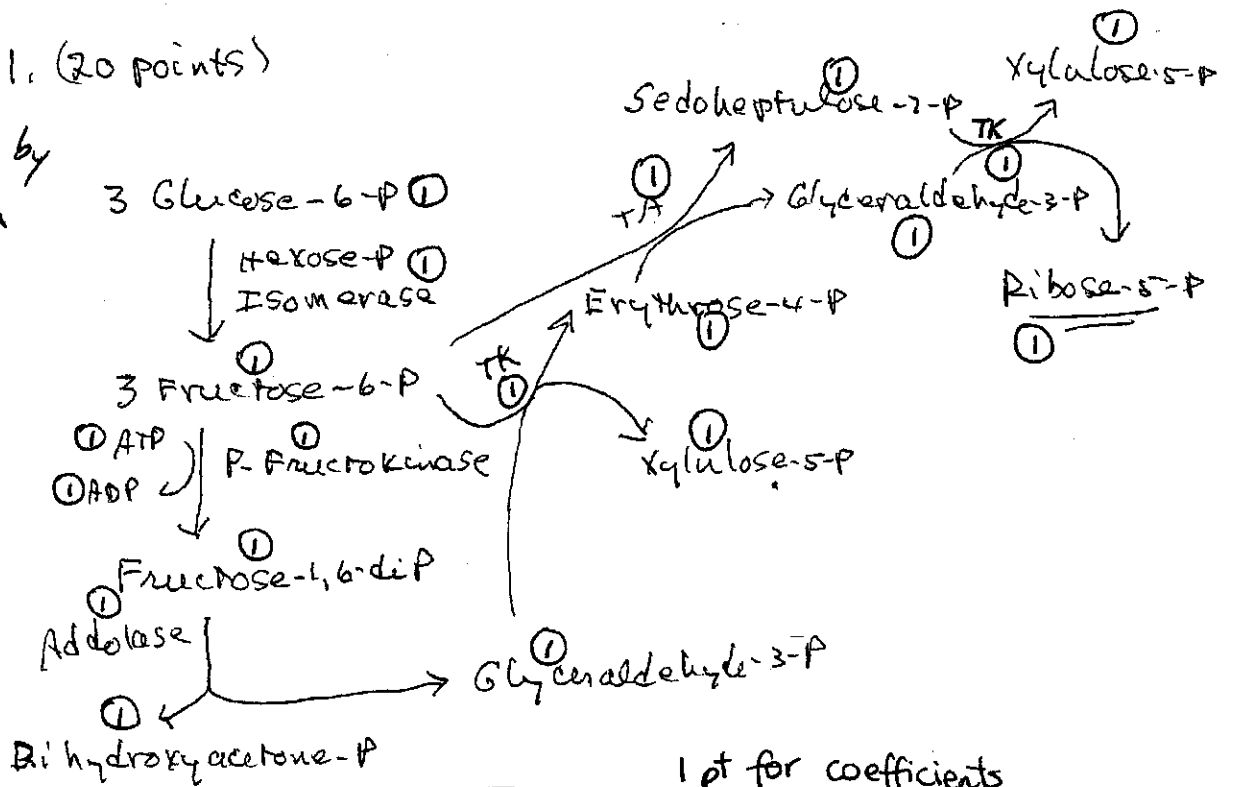 1. (20 points)
by
3 Glucose-6-P ①
Hexose-P ①
Isomerase
①
3 Fructose-6-P
① ATP
① ADP
①
P-Fructokinase
①
Fructose-1,6-diP
①
Addolase
①
Dihydroxyacetone-P
①
Glyceraldehyde-3-P
TK
①
①
Xylulose-5-P
Erythrose-4-P
①
①
TA
①
Sedoheptulose-7-P
Glyceraldehyde-3-P
①
TK
①
①
Xylulose-5-P
Ribose-5-P
①
1 pt for coefficients